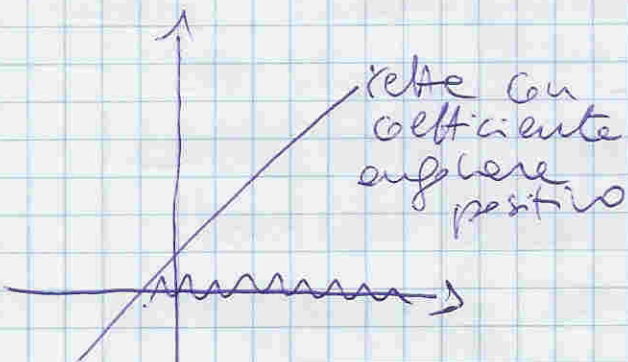 retta con
coefficiente
angolare
positivo